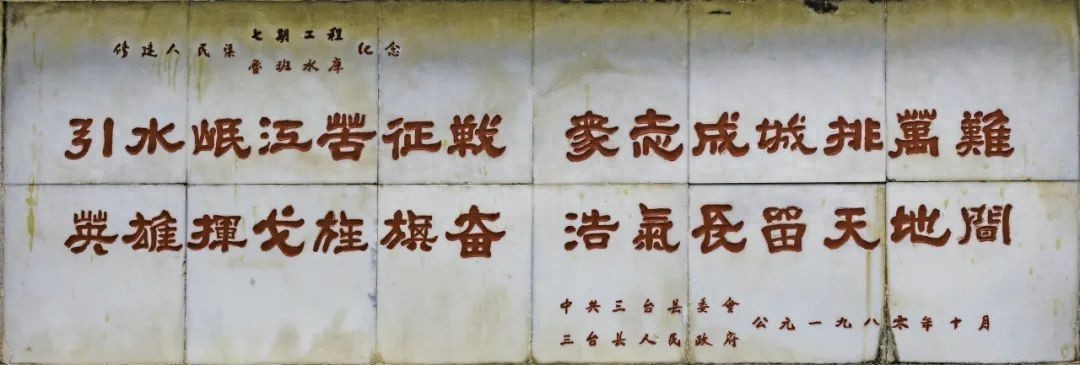 七期工程
修建人民渠 纪念
鲁班水库
引水岷江苦征戦 衆志成城排萬難
英雄揮戈旌旗奋 浩氣長留天地間
中共三台县委會
三台县人民政府
公元一九八零年十月